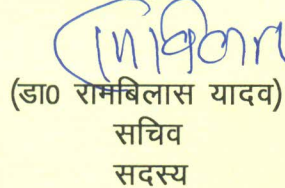 (डा0 रामबिलास यादव)
सचिव
सदस्य